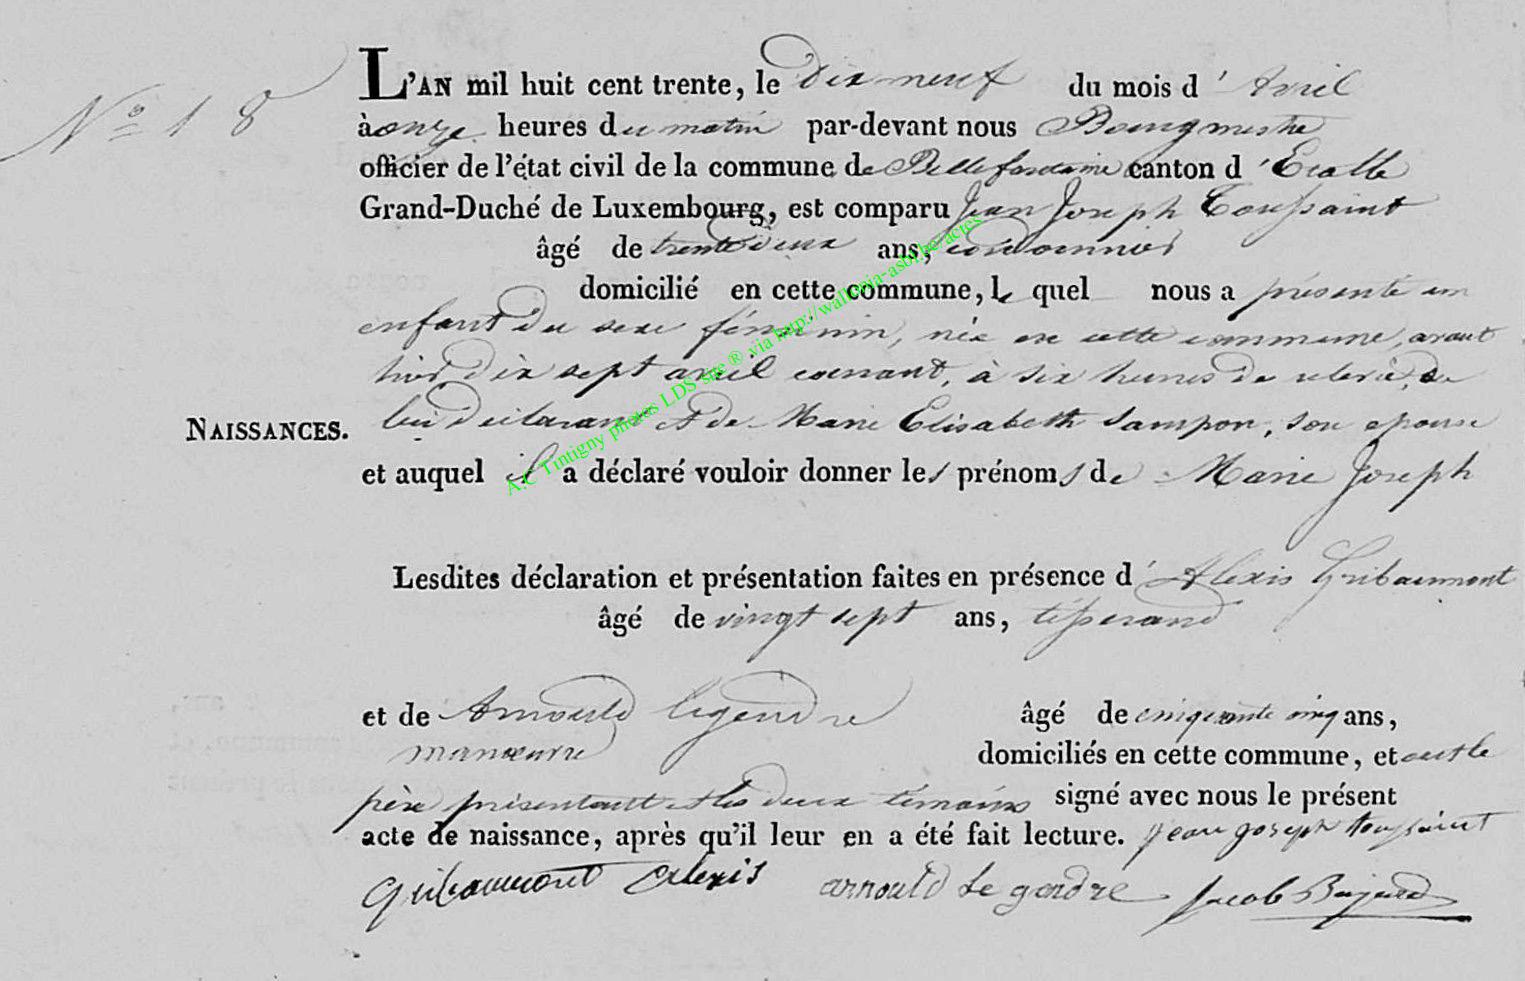 N° 18
L'AN mil huit cent trente, le dix neuf du mois d'Avril
à onze heures du matin par-devant nous Bourgmestre
officier de l'état civil de la commune de Bellefontaine canton d'Etalle
Grand-Duché de Luxembourg, est comparu Jean Joseph Toussaint
âgé de trente deux ans, cordonnier
domicilié en cette commune, le quel nous a présenté un
enfant du sexe féminin, née en cette commune, avant
hier dix sept avril courant, à six heures de relevé, de
lui déclarant et de Marie Elisabeth Sampon, son epouse
NAISSANCES.
et auquel il a déclaré vouloir donner les prénoms de Marie Joseph
Lesdites déclaration et présentation faites en présence d'Alexis Gribaumont
âgé de vingt sept ans, tisserand
et de Arnould Legendre âgé de cinquante cinq ans,
manœuvre domiciliés en cette commune, et ont le
père présentant et les deux témoins signé avec nous le présent
acte de naissance, après qu'il leur en a été fait lecture. jean joseph toussaint
Gribaumont Alexis arnould Le gendre Jacob
A.C Tintigny photos LDS site ® via http://wallonia-asbl.be/actes